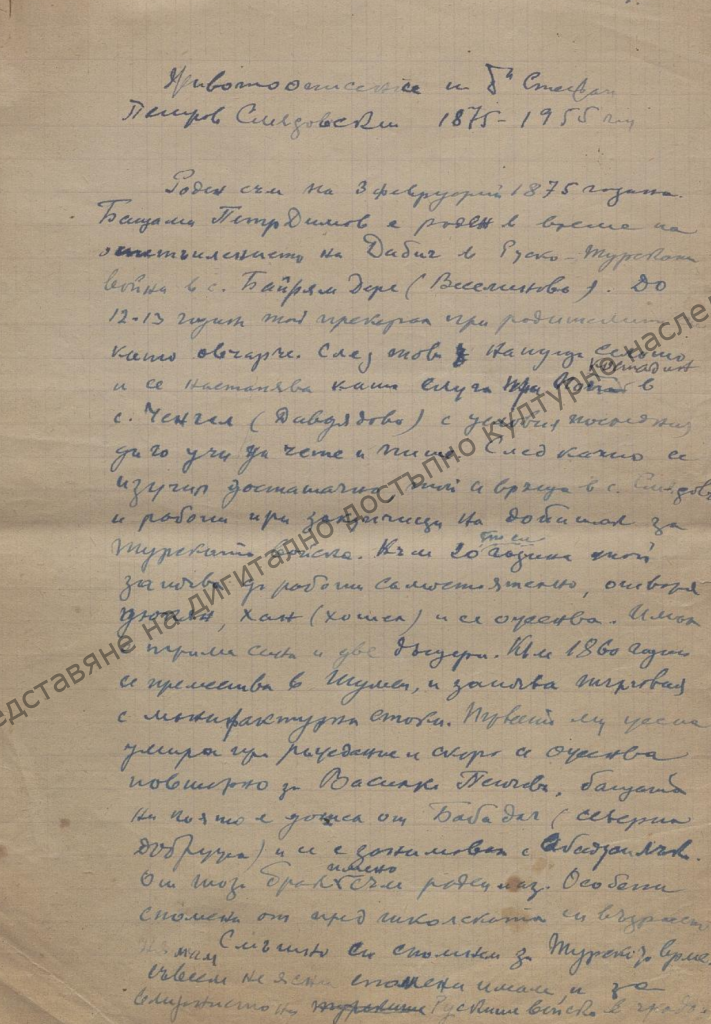 Животоописание на Д-р Стефан
Петров Смядовски 1875-1955 год
Роден съм на 3 февруарий 1875 година.
Баща ми Петр Димов е роден в време на
отстъплението на Дибич в Руско-Турската
война в с. Байрям Дере (Веселиново). До
12-13 годин той прекарва при родителите
като овчарче. След това напуща селото
и се настанява като слуга при Костадин в
с. Ченгел (Давдядово) с условия последния
да го учи да чете и пише. След като се
изучил достатъчно той се връща в с. Смядово
и работи при закупчици на добитък за
Турската войска. Към 20 година той
започва да работи самостоятелно, отваря
дюкян, хан (хотел) и се оженва. Имат
трима сина и две дъщери. Към 1860 година
се премества в Шумен, и започва търговия
с манифактурна стока. Първата му жена
умира при раждане и скоро се оженва
повторно за Василка Пенчева, бащата
на която е дошел от Бабадаг (северна
Добруджа) и се е занимавал с абаджилък.
От този брак именно съм роден аз. Особени
спомени от предшколската си възраст
нямам Смътно си спомням за Турско време.
съвсем не ясни спомени имам и за
влизането на турските Руските войски в града.
представяне на дигитално достъпно културно наслед